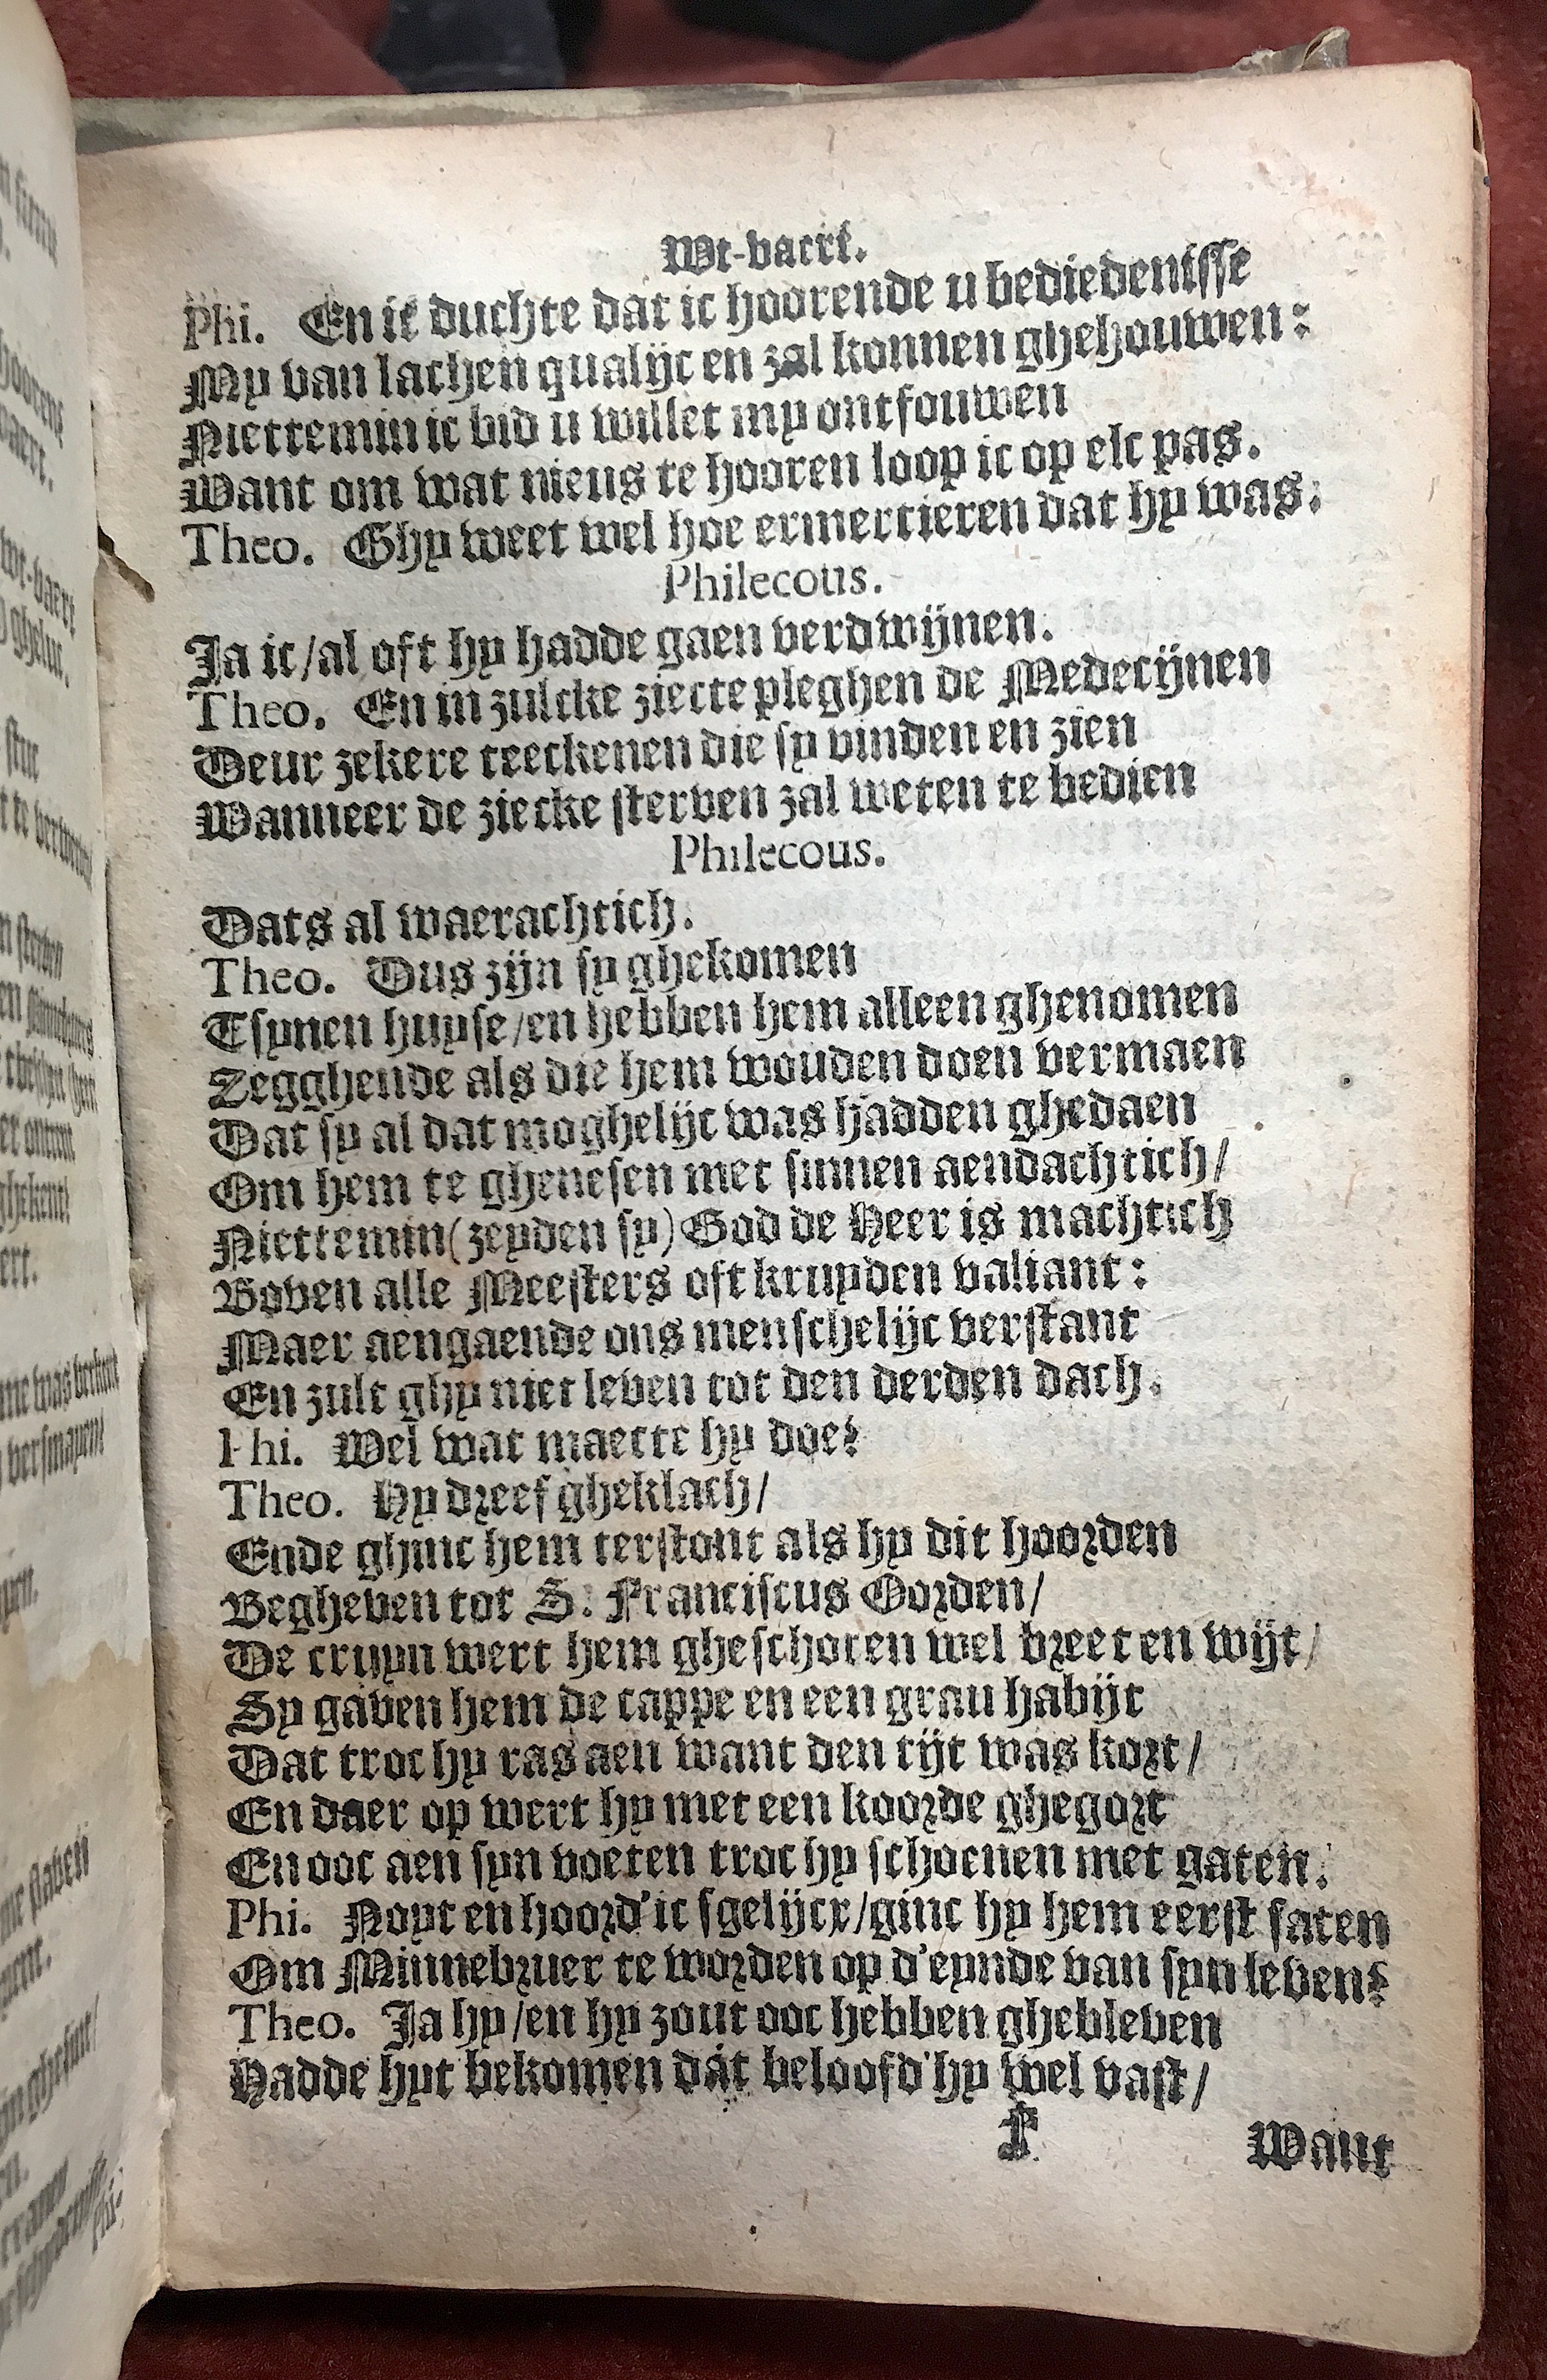 Wt-vaert.
Phi. En ic duchte dat ic hoorende u bediedenisse
My van lachen qualijc en zal konnen ghehouwen:
Niettemin ic bid u willet my ontfouwen
Want om wat nieus te hooren loop ic op elc pas.
Theo. Ghy weet wel hoe ermertieren dat hy was:
Philecous.
Ja ic/al oft hy hadde gaen verdwijnen.
Theo. En in zulcke ziecte pleghen de Medecijnen
Deur zekere teeckenen die sy vinden en zien
Wanneer de ziecke sterven zal weten te bedien
Philecous.
Dats al waerachtich.
Theo. Dus zijn sy ghekomen
Tsynen huyse/en hebben hem alleen ghenomen
Zegghende als die hem wouden doen vermaen
Dat sy al dat moghelijc was hadden ghedaen
Om hem te ghenesen met sinnen aendachtich/
Niettemin(zeyden sy) God de Heer is machtich
Boven alle Meesters oft kruyden valiant:
Maer aengaende ons menschelijc verstant
En zult ghy niet leven tot den derden dach.
Phi. Wel wat maecte hy doe?
Theo. Hy dreef gheklach/
Ende ghinc hem terstont als hy dit hoorden
Begheven tot S. Franciscus Oorden/
De cruyn wert hem gheschoren wel breet en wijt/
Sy gaven hem de cappe en een grau habijt
Dat troc hy ras aen want den tijt was kort/
En daer op wert hy met een koorde ghegort
En ooc aen syn voeten troc hy schoenen met gaten.
Phi. Noyt en hoord'ic sgelijcx/ginc hy hem eerst saten
Om Minnebruer te worden op d'eynde van syn leven?
Theo. Ja hy/en hy zout ooc hebben ghebleven
Hadde hyt bekomen dat beloofd'hy wel vast/
F
Want